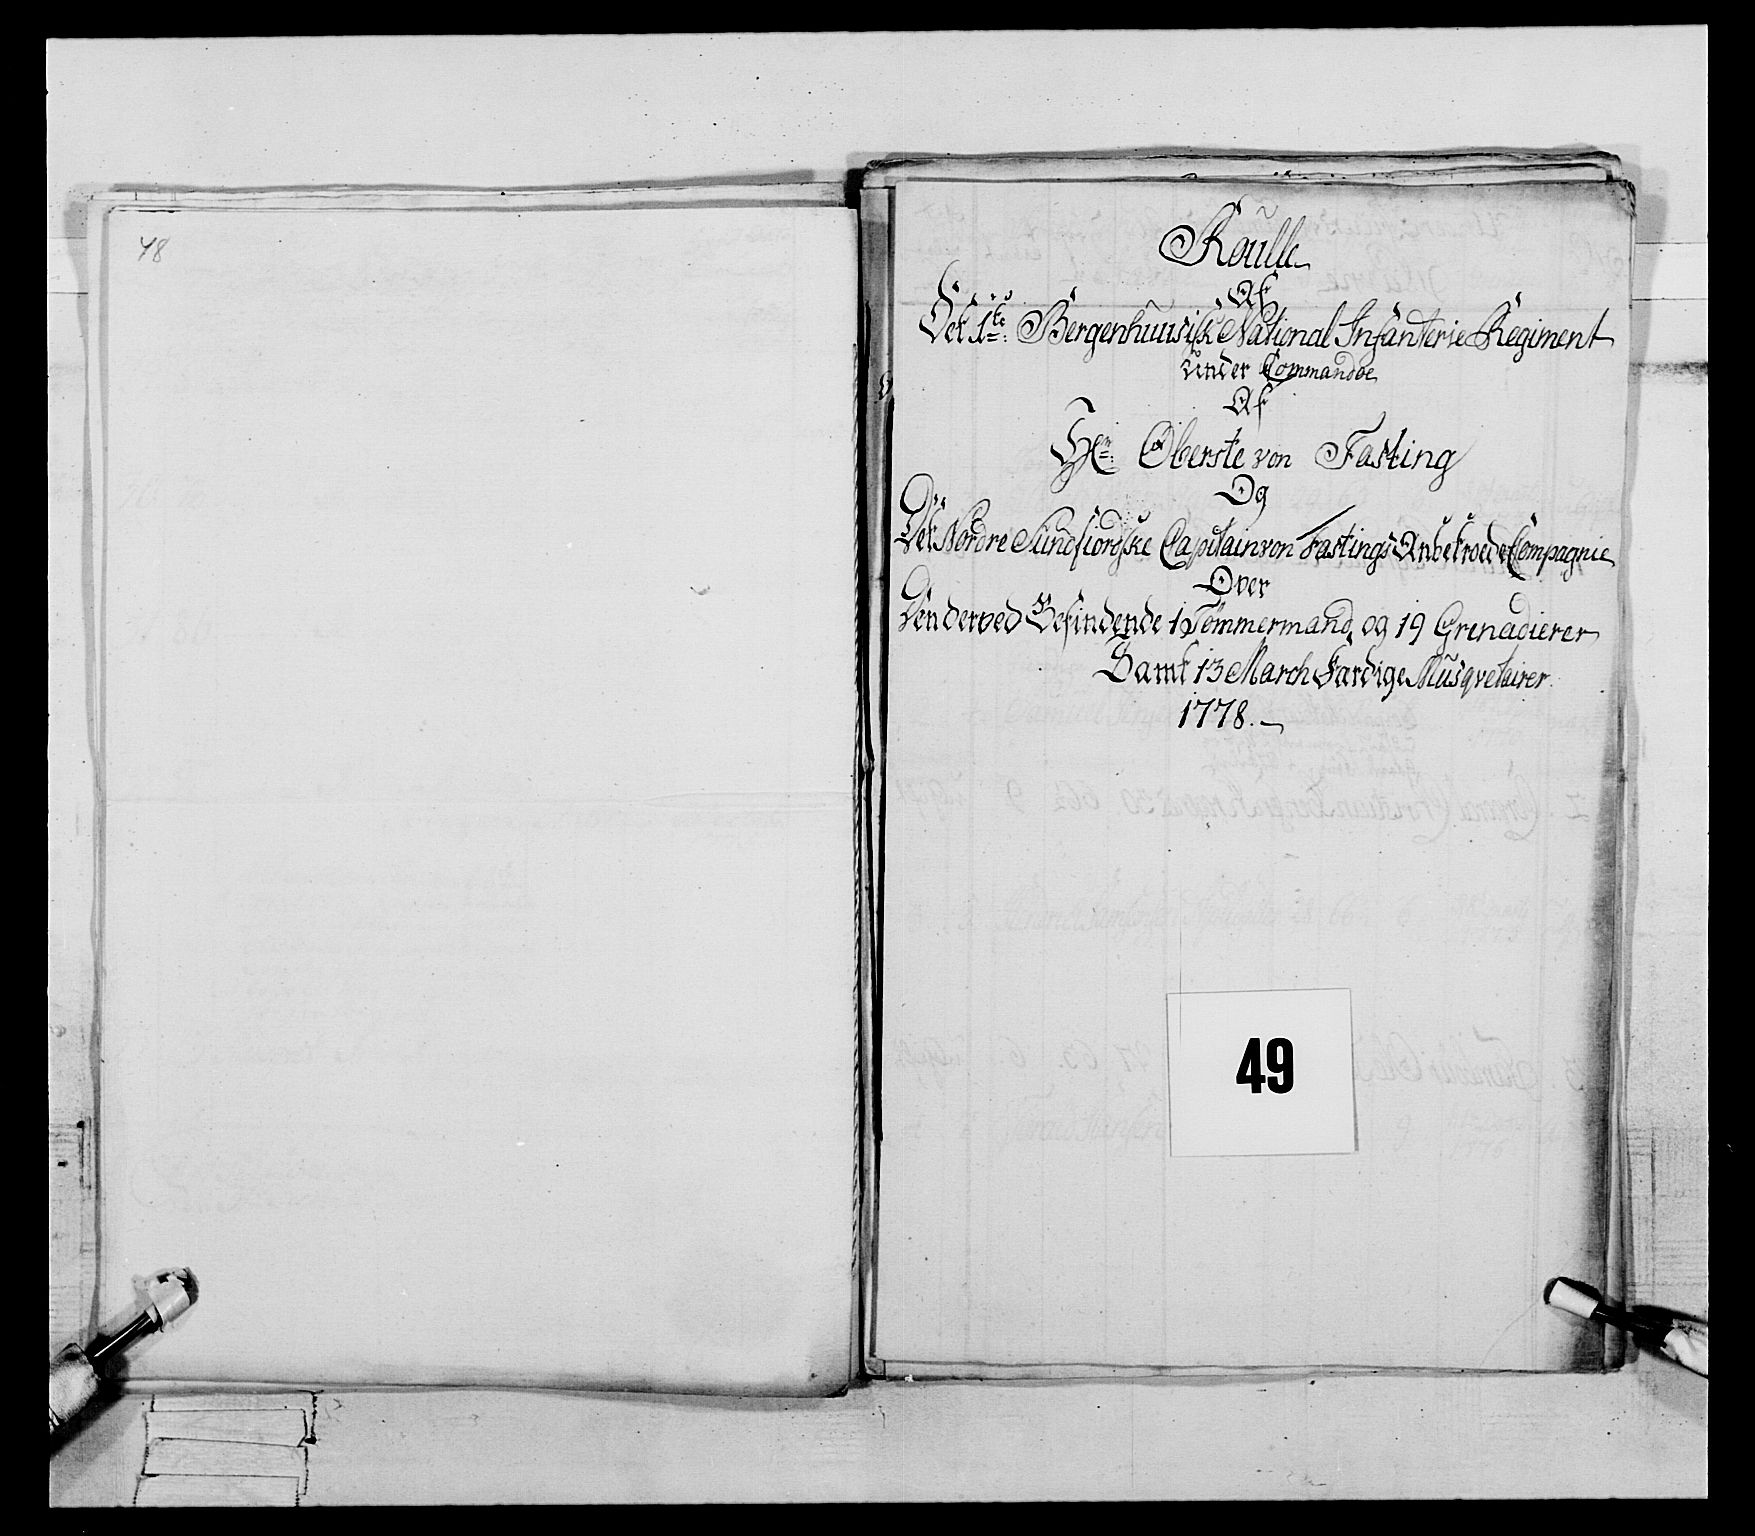 48
Roulle
Af
Det 1te Bergenhuusiske National Infanterie Regiment
Under Commandoe
Af
Hr: Oberste von Fasting
Og
Det Nordre Sundfiordske Capitain von Fastings Anbetroede Compagnie
Over
Den derved Befindende 1 Tømmermand, og 19 Grenadierer
Samt 13 March Færdige Musqveterer
1778.
49